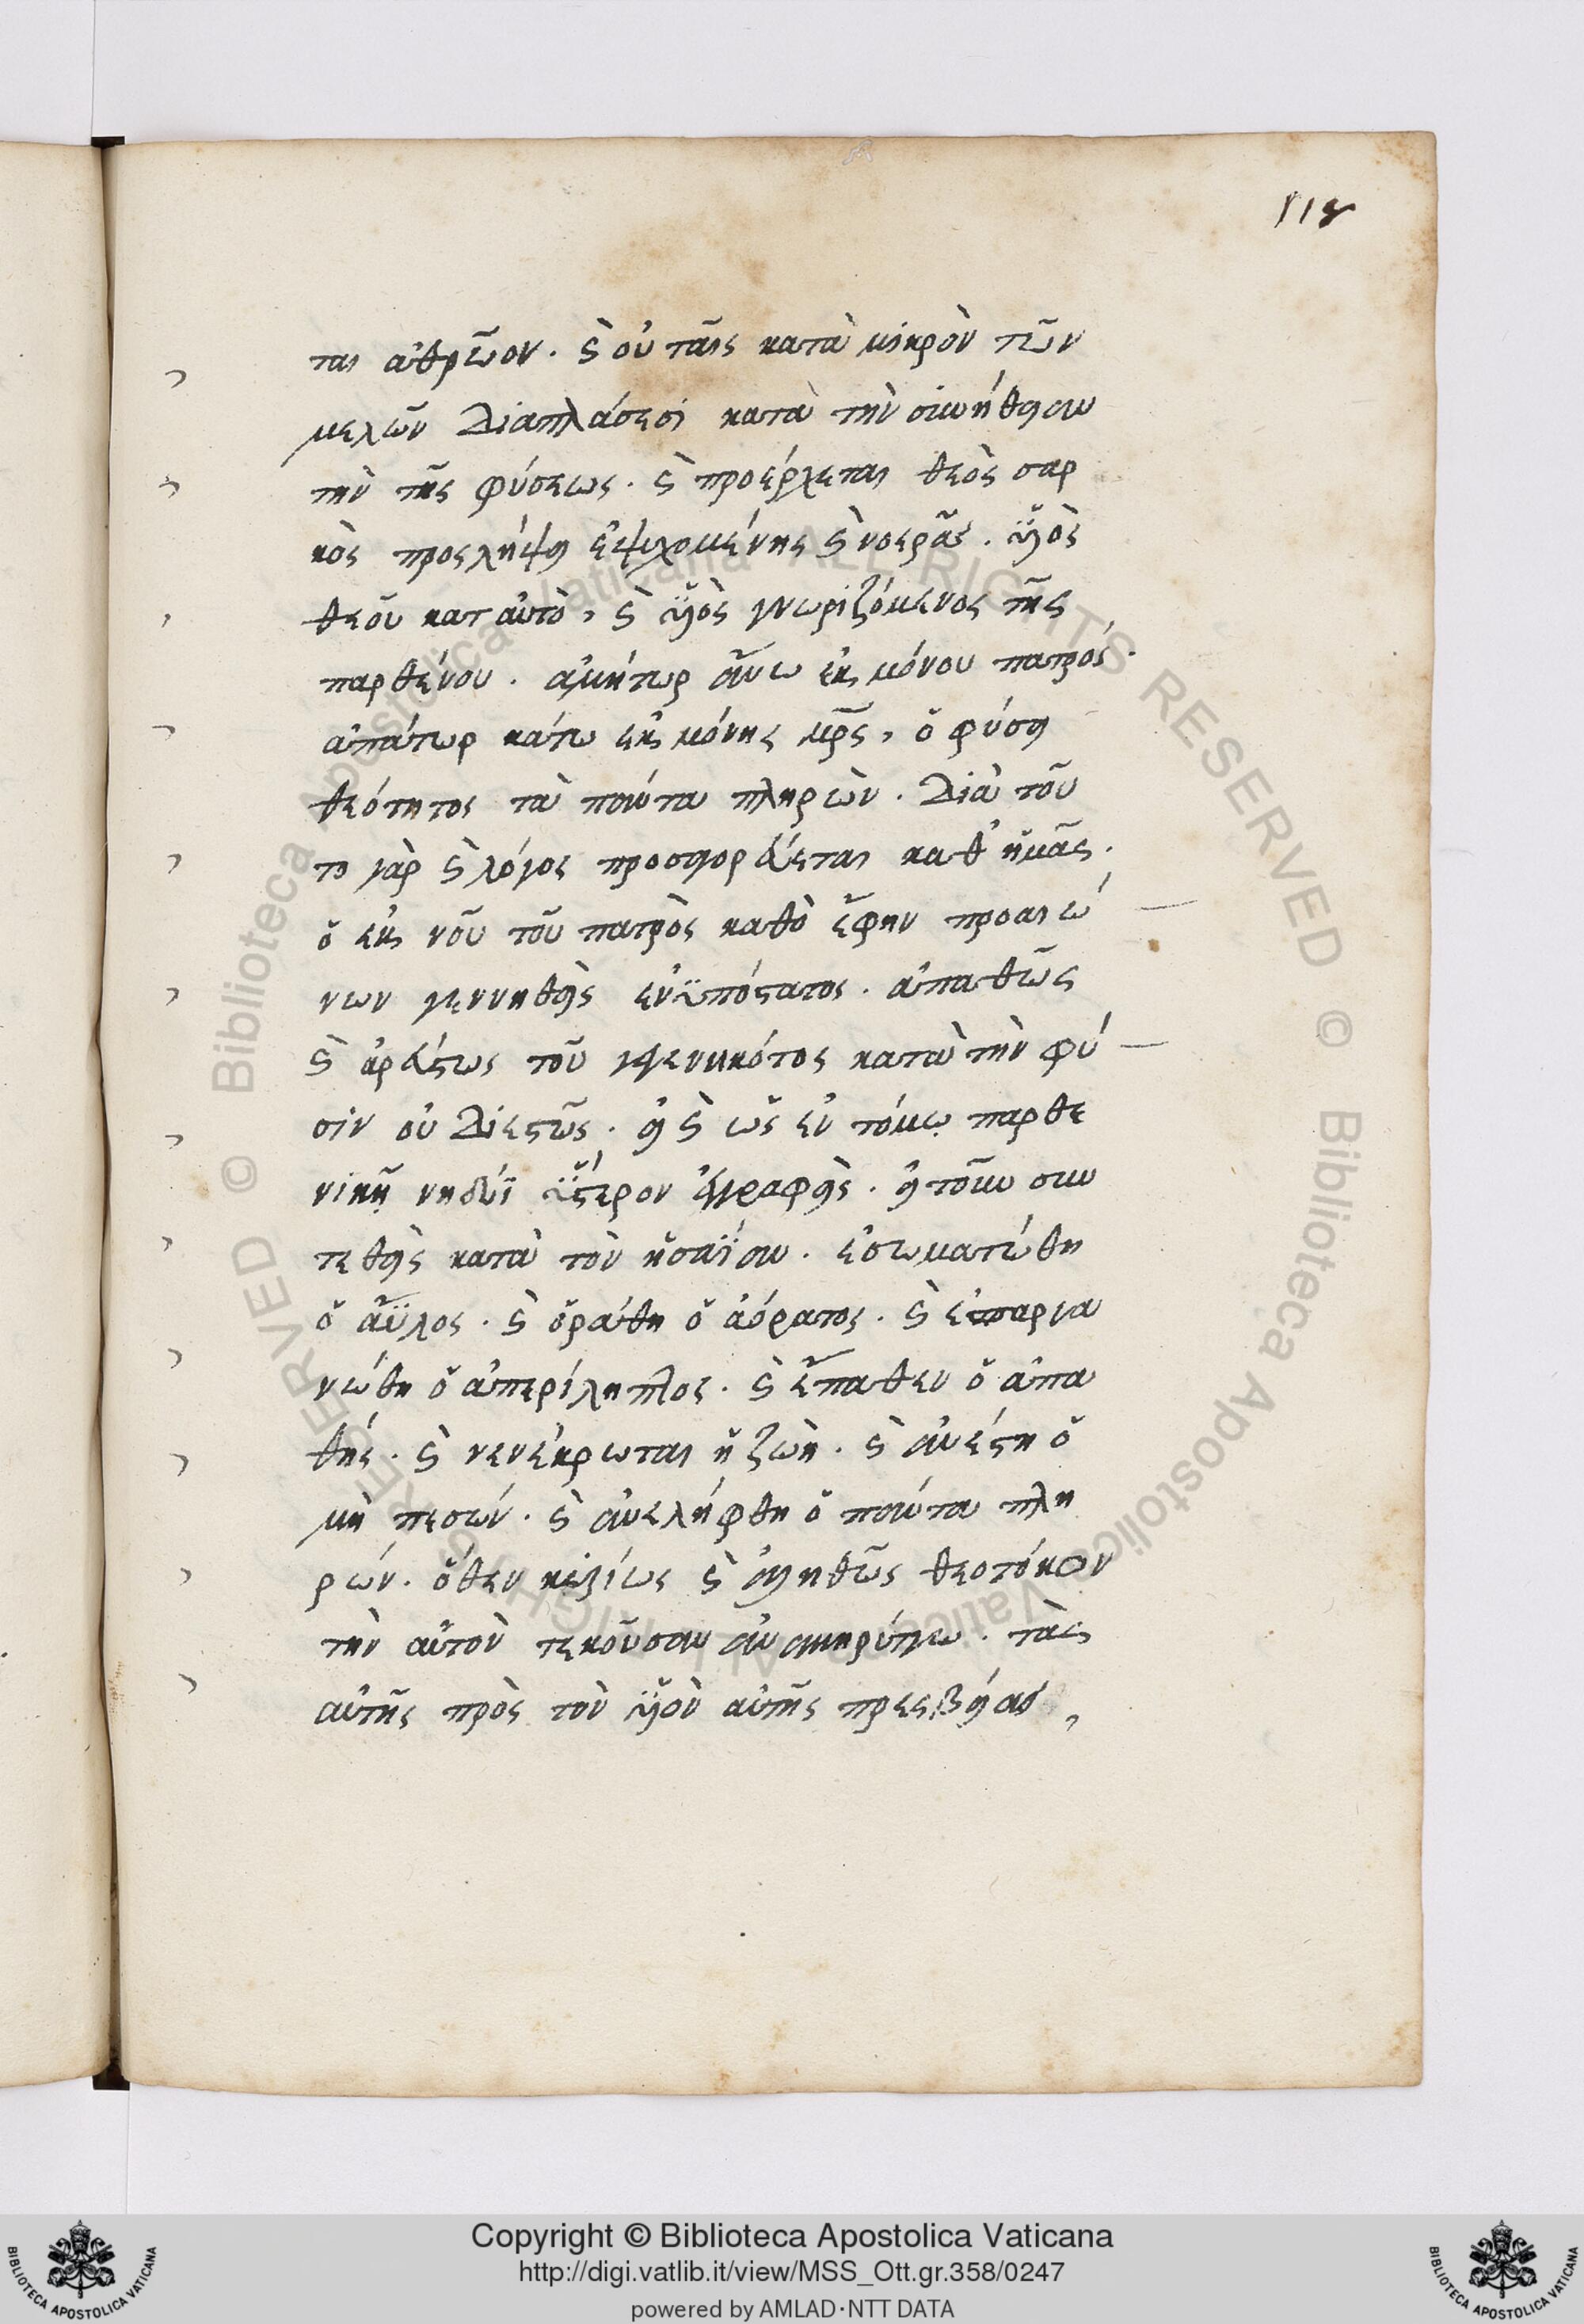 118
ται ἀθρῶον. ϗ οὐ ταῖς κατὰ μικρὸν τῶν
μελῶν διαπλάσεσι κατὰ τὴν συνήθειαν
τὴν τῆς φύσεως. ϗ προέρχεται θεὸς σαρ
κὸς προςλήψει ἐψυχομένης ϗ νοερᾶς. υἱὸς
θεοῦ κατ αὐτὸ, ϗ υἱὸς γνωριζόμενος τῆς
παρθένου. ἀμήτωρ ἄνω ἐκ μόνου πατρός.
ἀπάτωρ κάτω ἐκ μόνης μρς, ὁ φύσει
θεότητος τὰ πάντα πληρῶν. διὰ τοῦ
το γὰρ ϗ λόγος προσαγορεύεται καθ ἡμᾶς.
ὁ ἐκ νοῦ τοῦ πατρὸς καθὸ ἔφην προαιώ
νων γεννηθεὶς ἐνϋπόστατος. ἀπαθῶς
ϗ ἀρεύστως τοῦ γεγεννηκότος κατὰ τὴν φύ
σιν οὐ διεστῶς. εἰ ϗ ὡς ἐν τόμῳ παρθε
νικῇ νηδύϊ ὕστερον ἐγγραφεὶς. εἴτουν συν
τεθεὶς κατὰ τὸν ἠσαΐαν. ἐσωματώθη
ὁ ἄϋλος. ϗ ὁράθη ὁ ἀόρατος. ϗ ἐσπαργα
νώθη ὁ ἀπερίληπτος. ϗ ἔπαθεν ὁ ἀπα
θής. ϗ νενέκρωται ἡ ζωὴ. ϗ ἀνέστη ὁ
μὴ πεσών. ϗ ἀνελήφθη ὁ πάντα πλη
ρών. ὅθεν κυρίως ϗ ἀληθῶς θεοτόκον
τὴν αὐτὸν τεκοῦσαν ἀνακηρύττω. τὰς
αὐτῆς πρὸς τὸν υἱὸν αὐτῆς πρεςβείας,
Biblioteca Apostolica Vaticana ALL RIGHTS RESERVED © Biblioteca Apostolica Vaticana ALL RIGHTS RESERVED ©
Copyright © Biblioteca Apostolica Vaticana
http://digi.vatlib.it/view/MSS_Ott.gr.358/0247
powered by AMLAD·NTT DATA
BIBLIOTECA APOSTOLICA VATICANA
BIBLIOTECA APOSTOLICA VATICANA